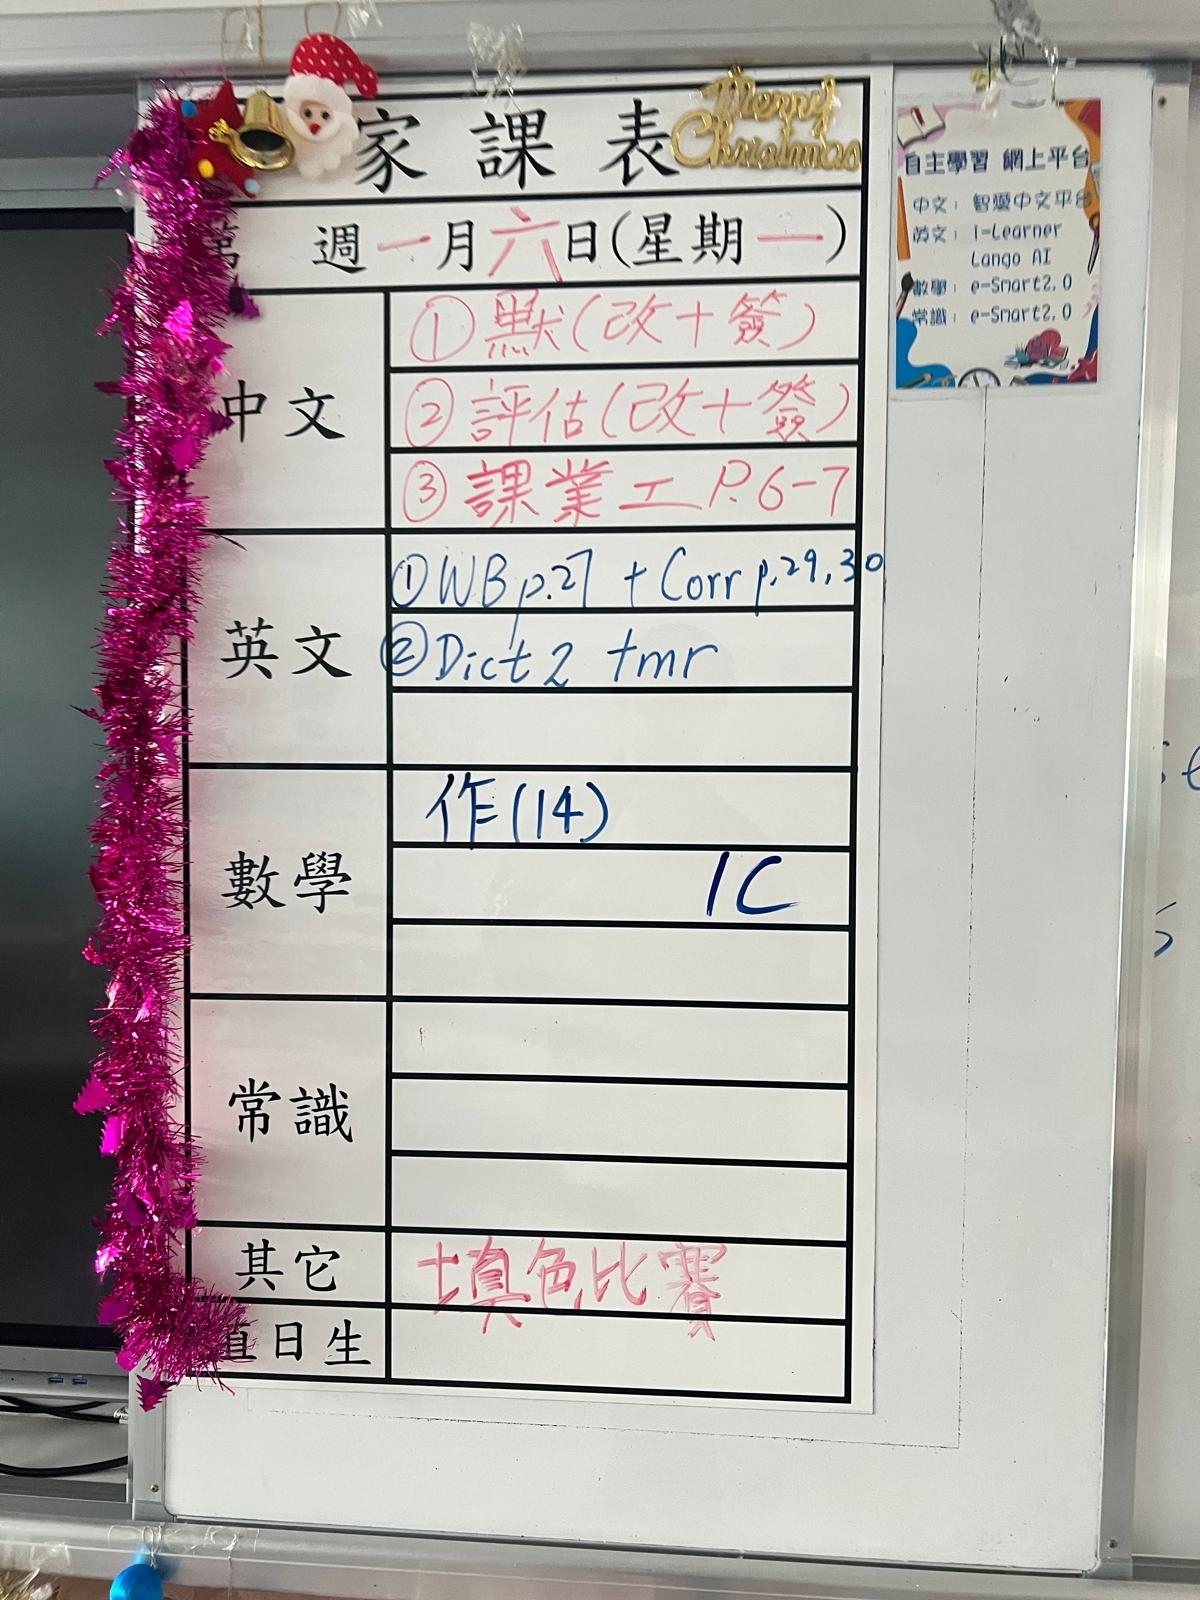 Merry
Christmas
家課表
第 週一月六日(星期一)
中文
①默(改+簽)
②評估(改+簽)
③課業工P.6-7
英文
①WB p.27 + Corr p.29,30
②Dict 2 tmr
數學
作(14)
1C
常識
其它
填色比賽
直日生
自主學習 網上平台
中文: 智愛中文平台
英文: i-Learner
Lango AI
數學: e-Smart2.0
常識: e-Smart2.0